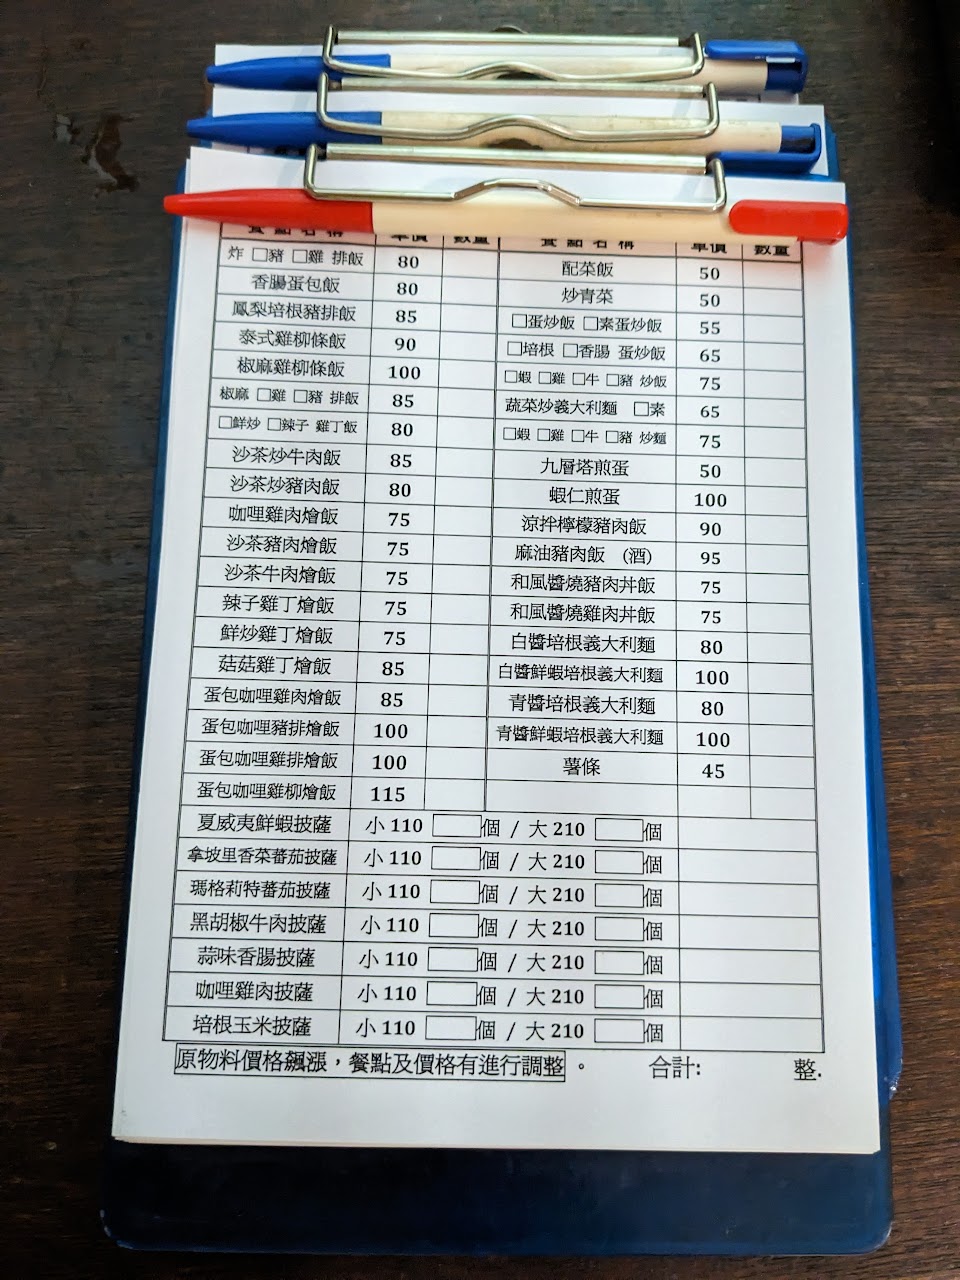 餐點名稱 單價 數量 餐點名稱 單價 數量
炸 □豬 □雞 排飯 80 配菜飯 50
香腸蛋包飯 80 炒青菜 50
鳳梨培根豬排飯 85 □蛋炒飯 □素蛋炒飯 55
泰式雞柳條飯 90 □培根 □香腸 蛋炒飯 65
椒麻雞柳條飯 100 □蝦 □雞 □牛 □豬 炒飯 75
椒麻 □雞 □豬 排飯 85 蔬菜炒義大利麵 □素 65
□鮮炒 □辣子 雞丁飯 80 □蝦 □雞 □牛 □豬 炒麵 75
沙茶炒牛肉飯 85 九層塔煎蛋 50
沙茶炒豬肉飯 80 蝦仁煎蛋 100
咖哩雞肉燴飯 75 涼拌檸檬豬肉飯 90
沙茶豬肉燴飯 75 麻油豬肉飯 (酒) 95
沙茶牛肉燴飯 75 和風醬燒豬肉丼飯 75
辣子雞丁燴飯 75 和風醬燒雞肉丼飯 75
鮮炒雞丁燴飯 75 白醬培根義大利麵 80
菇菇雞丁燴飯 85 白醬鮮蝦培根義大利麵 100
蛋包咖哩雞肉燴飯 85 青醬培根義大利麵 80
蛋包咖哩豬排燴飯 100 青醬鮮蝦培根義大利麵 100
蛋包咖哩雞排燴飯 100 薯條 45
蛋包咖哩雞柳燴飯 115
夏威夷鮮蝦披薩 小 110 個 / 大 210 個
拿坡里香菜蕃茄披薩 小 110 個 / 大 210 個
瑪格莉特蕃茄披薩 小 110 個 / 大 210 個
黑胡椒牛肉披薩 小 110 個 / 大 210 個
蒜味香腸披薩 小 110 個 / 大 210 個
咖哩雞肉披薩 小 110 個 / 大 210 個
培根玉米披薩 小 110 個 / 大 210 個
原物料價格飆漲，餐點及價格有進行調整。 合計: 整.